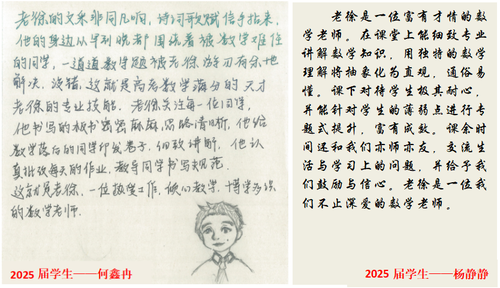 老徐的文采非同凡响，诗词歌赋信手拈来，
他的身边从早到晚都围绕着被数学难住
的同学，一道道数学题被老徐游刃有余地
解决，没错，这就是高考数学满分的天才
老徐的专业技能。老徐关注每一位同学，
他书写的板书密密麻麻，思路清晰，他给
数学落后的同学印发卷子，细致讲解，他认
真批改每天的作业，教导同学书写规范。
这就是老徐，一位热爱工作，倾心教学，博学多识
的数学老师。
2025 届学生——何鑫冉
老徐是一位富有才情的数
学老师。在课堂上能细致专业
讲解数学知识，用独特的数学
理解将抽象化为直观，通俗易
懂。课下对待学生极其耐心，
并能针对学生的薄弱点进行专
题式提升，富有成效。课余时
间还和我们亦师亦友，交流生
活与学习上的问题，并给予我
们鼓励与信心。老徐是一位我
们不止深爱的数学老师。
2025 届学生——杨静静